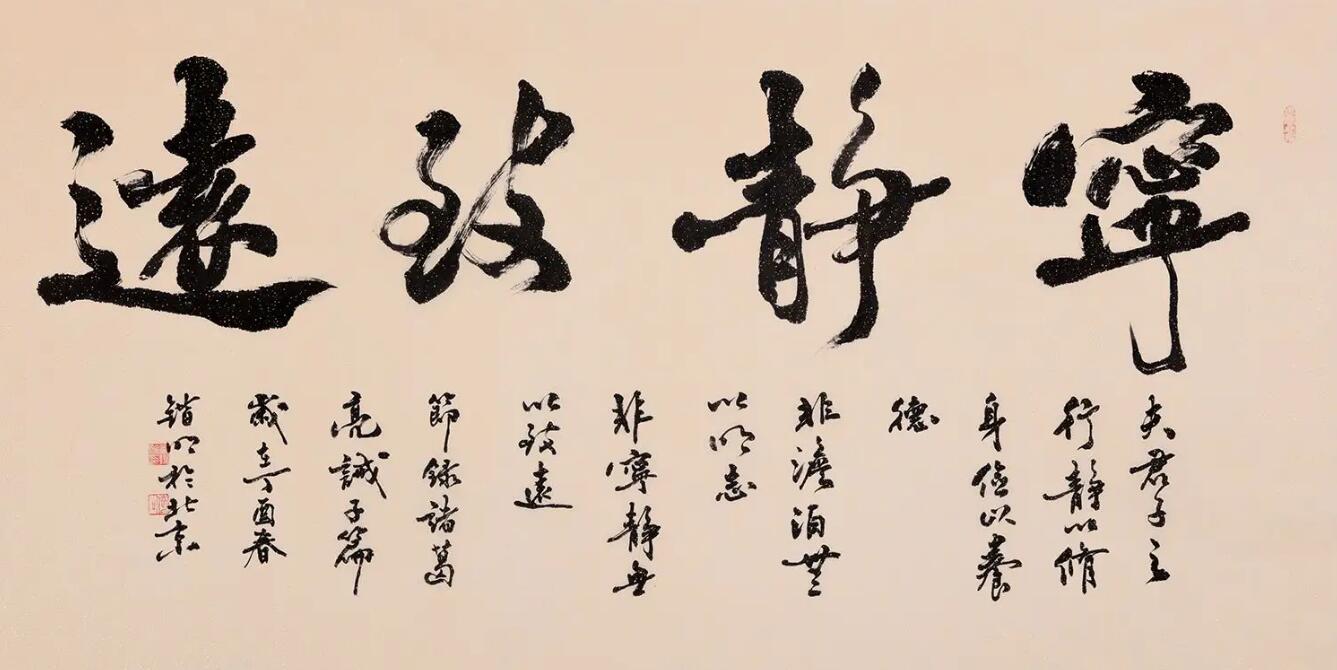 寧靜致遠
夫君子之
行靜以脩
身儉以養
德
非澹泊無
以明志
非寧靜無
以致遠
節錄諸葛
亮誡子篇
歲在丁酉春
鎖明於北京